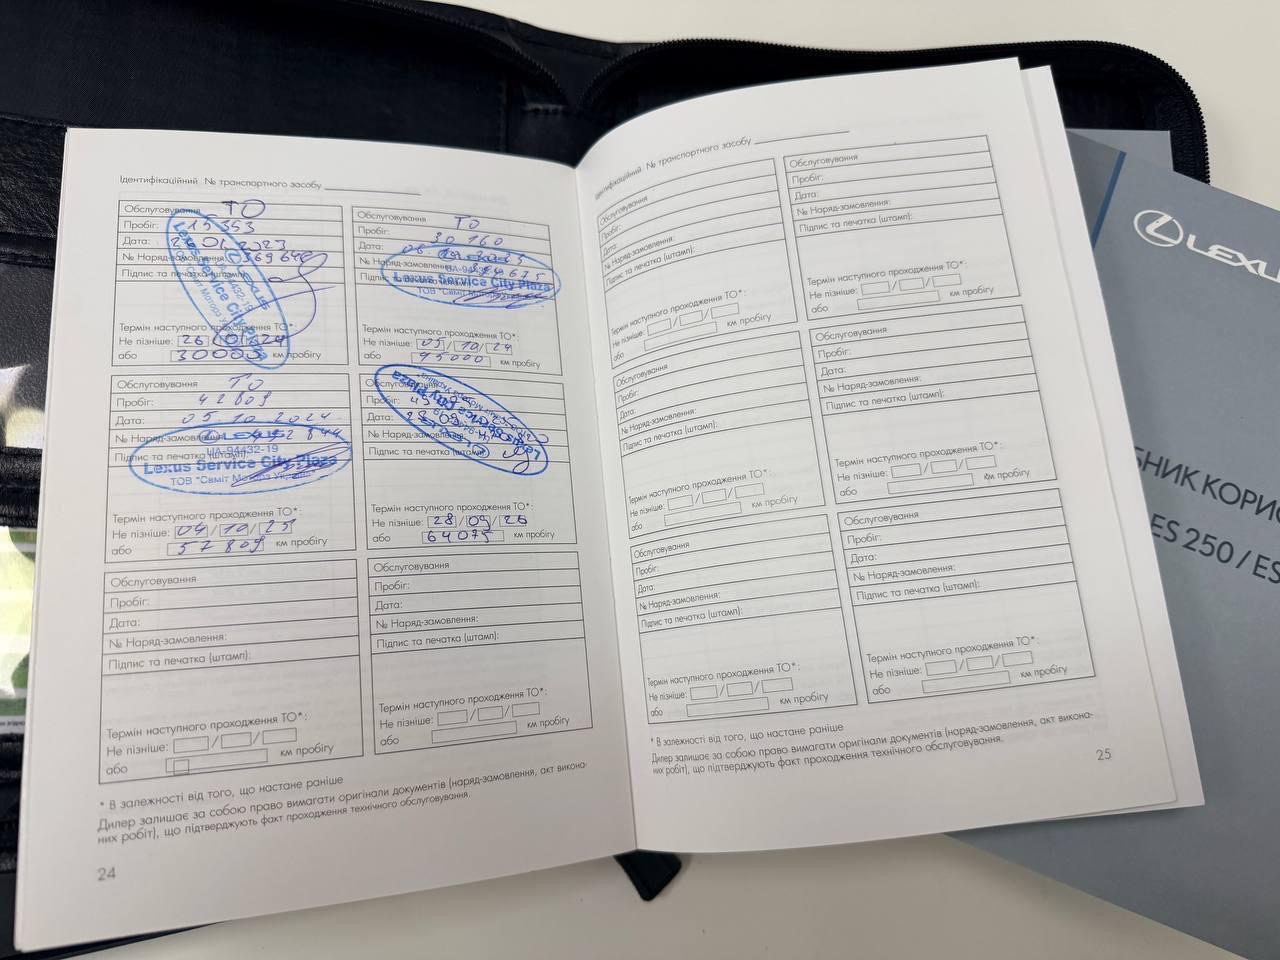 Ідентифікаційний № транспортного засобу
Обслуговування ТО
Пробіг: 15353
Дата: 2023
№ Наряд-замовлення:
Підпис та печатка (штамп):
Lexus Service City Plaza
Термін наступного проходження ТО*:
Не пізніше: 26/01/24
або 30000 км пробігу
Обслуговування ТО
Пробіг: 30160
Дата:
№ Наряд-замовлення:
Lexus Service City Plaza
Термін наступного проходження ТО*:
Не пізніше: 05/10/24
або 45000 км пробігу
Обслуговування ТО
Пробіг: 42809
Дата: 05.10.2024
№ Наряд-замовлення:
Підпис та печатка (штамп):
UA-94432-19
Lexus Service City Plaza
ТОВ "Саміт Моторз Україна"
Термін наступного проходження ТО*:
Не пізніше: 04/10/25
або 57809 км пробігу
Обслуговування
Пробіг:
Дата:
№ Наряд-замовлення:
Підпис та печатка (штамп):
Термін наступного проходження ТО*:
Не пізніше: 28/09/26
або 64075 км пробігу
Обслуговування
Пробіг:
Дата:
№ Наряд-замовлення:
Підпис та печатка (штамп):
Термін наступного проходження ТО*:
Не пізніше: / /
або км пробігу
Обслуговування
Пробіг:
Дата:
№ Наряд-замовлення:
Підпис та печатка (штамп):
Термін наступного проходження ТО*:
Не пізніше: / /
або км пробігу
* В залежності від того, що настане раніше
Дилер залишає за собою право вимагати оригінали документів (наряд-замовлення, акт викона-
них робіт), що підтверджують факт проходження технічного обслуговування.
24
Ідентифікаційний № транспортного засобу
Обслуговування
Пробіг:
Дата:
№ Наряд-замовлення:
Підпис та печатка (штамп):
Термін наступного проходження ТО*:
Не пізніше: / /
або км пробігу
Обслуговування
Пробіг:
Дата:
№ Наряд-замовлення:
Підпис та печатка (штамп):
Термін наступного проходження ТО*:
Не пізніше: / /
або км пробігу
Обслуговування
Пробіг:
Дата:
№ Наряд-замовлення:
Підпис та печатка (штамп):
Термін наступного проходження ТО*:
Не пізніше: / /
або км пробігу
Обслуговування
Пробіг:
Дата:
№ Наряд-замовлення:
Підпис та печатка (штамп):
Термін наступного проходження ТО*:
Не пізніше: / /
або км пробігу
Обслуговування
Пробіг:
Дата:
№ Наряд-замовлення:
Підпис та печатка (штамп):
Термін наступного проходження ТО*:
Не пізніше: / /
або км пробігу
Обслуговування
Пробіг:
Дата:
№ Наряд-замовлення:
Підпис та печатка (штамп):
Термін наступного проходження ТО*:
Не пізніше: / /
або км пробігу
* В залежності від того, що настане раніше
Дилер залишає за собою право вимагати оригінали документів (наряд-замовлення, акт викона-
них робіт), що підтверджують факт проходження технічного обслуговування.
25
LEXU
БНИК КОРИС
ES 250 / ES